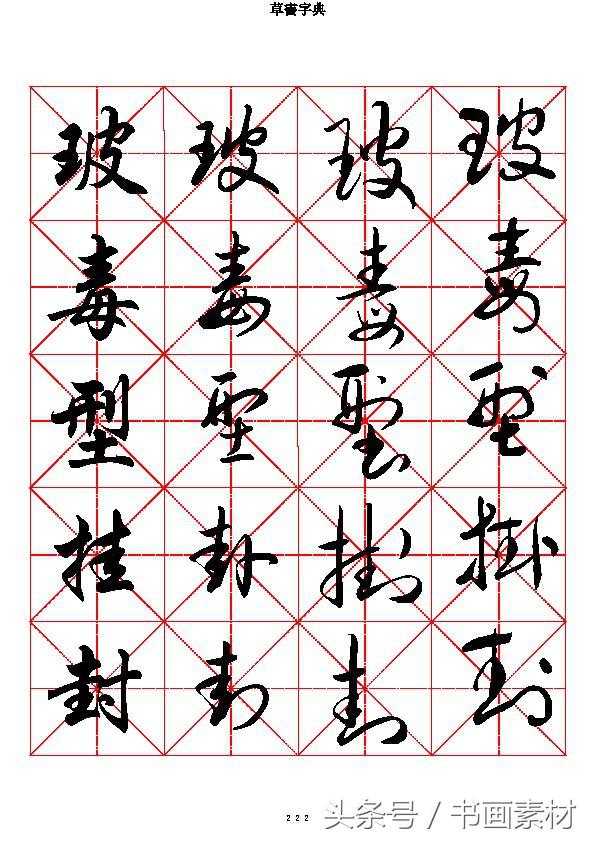 草書字典
玻 玻 玻 玻
毒 毒 毒 毒
型 型 型 型
挂 卦 掛 掛
封 封 封 封
222
头条号 / 书画素材